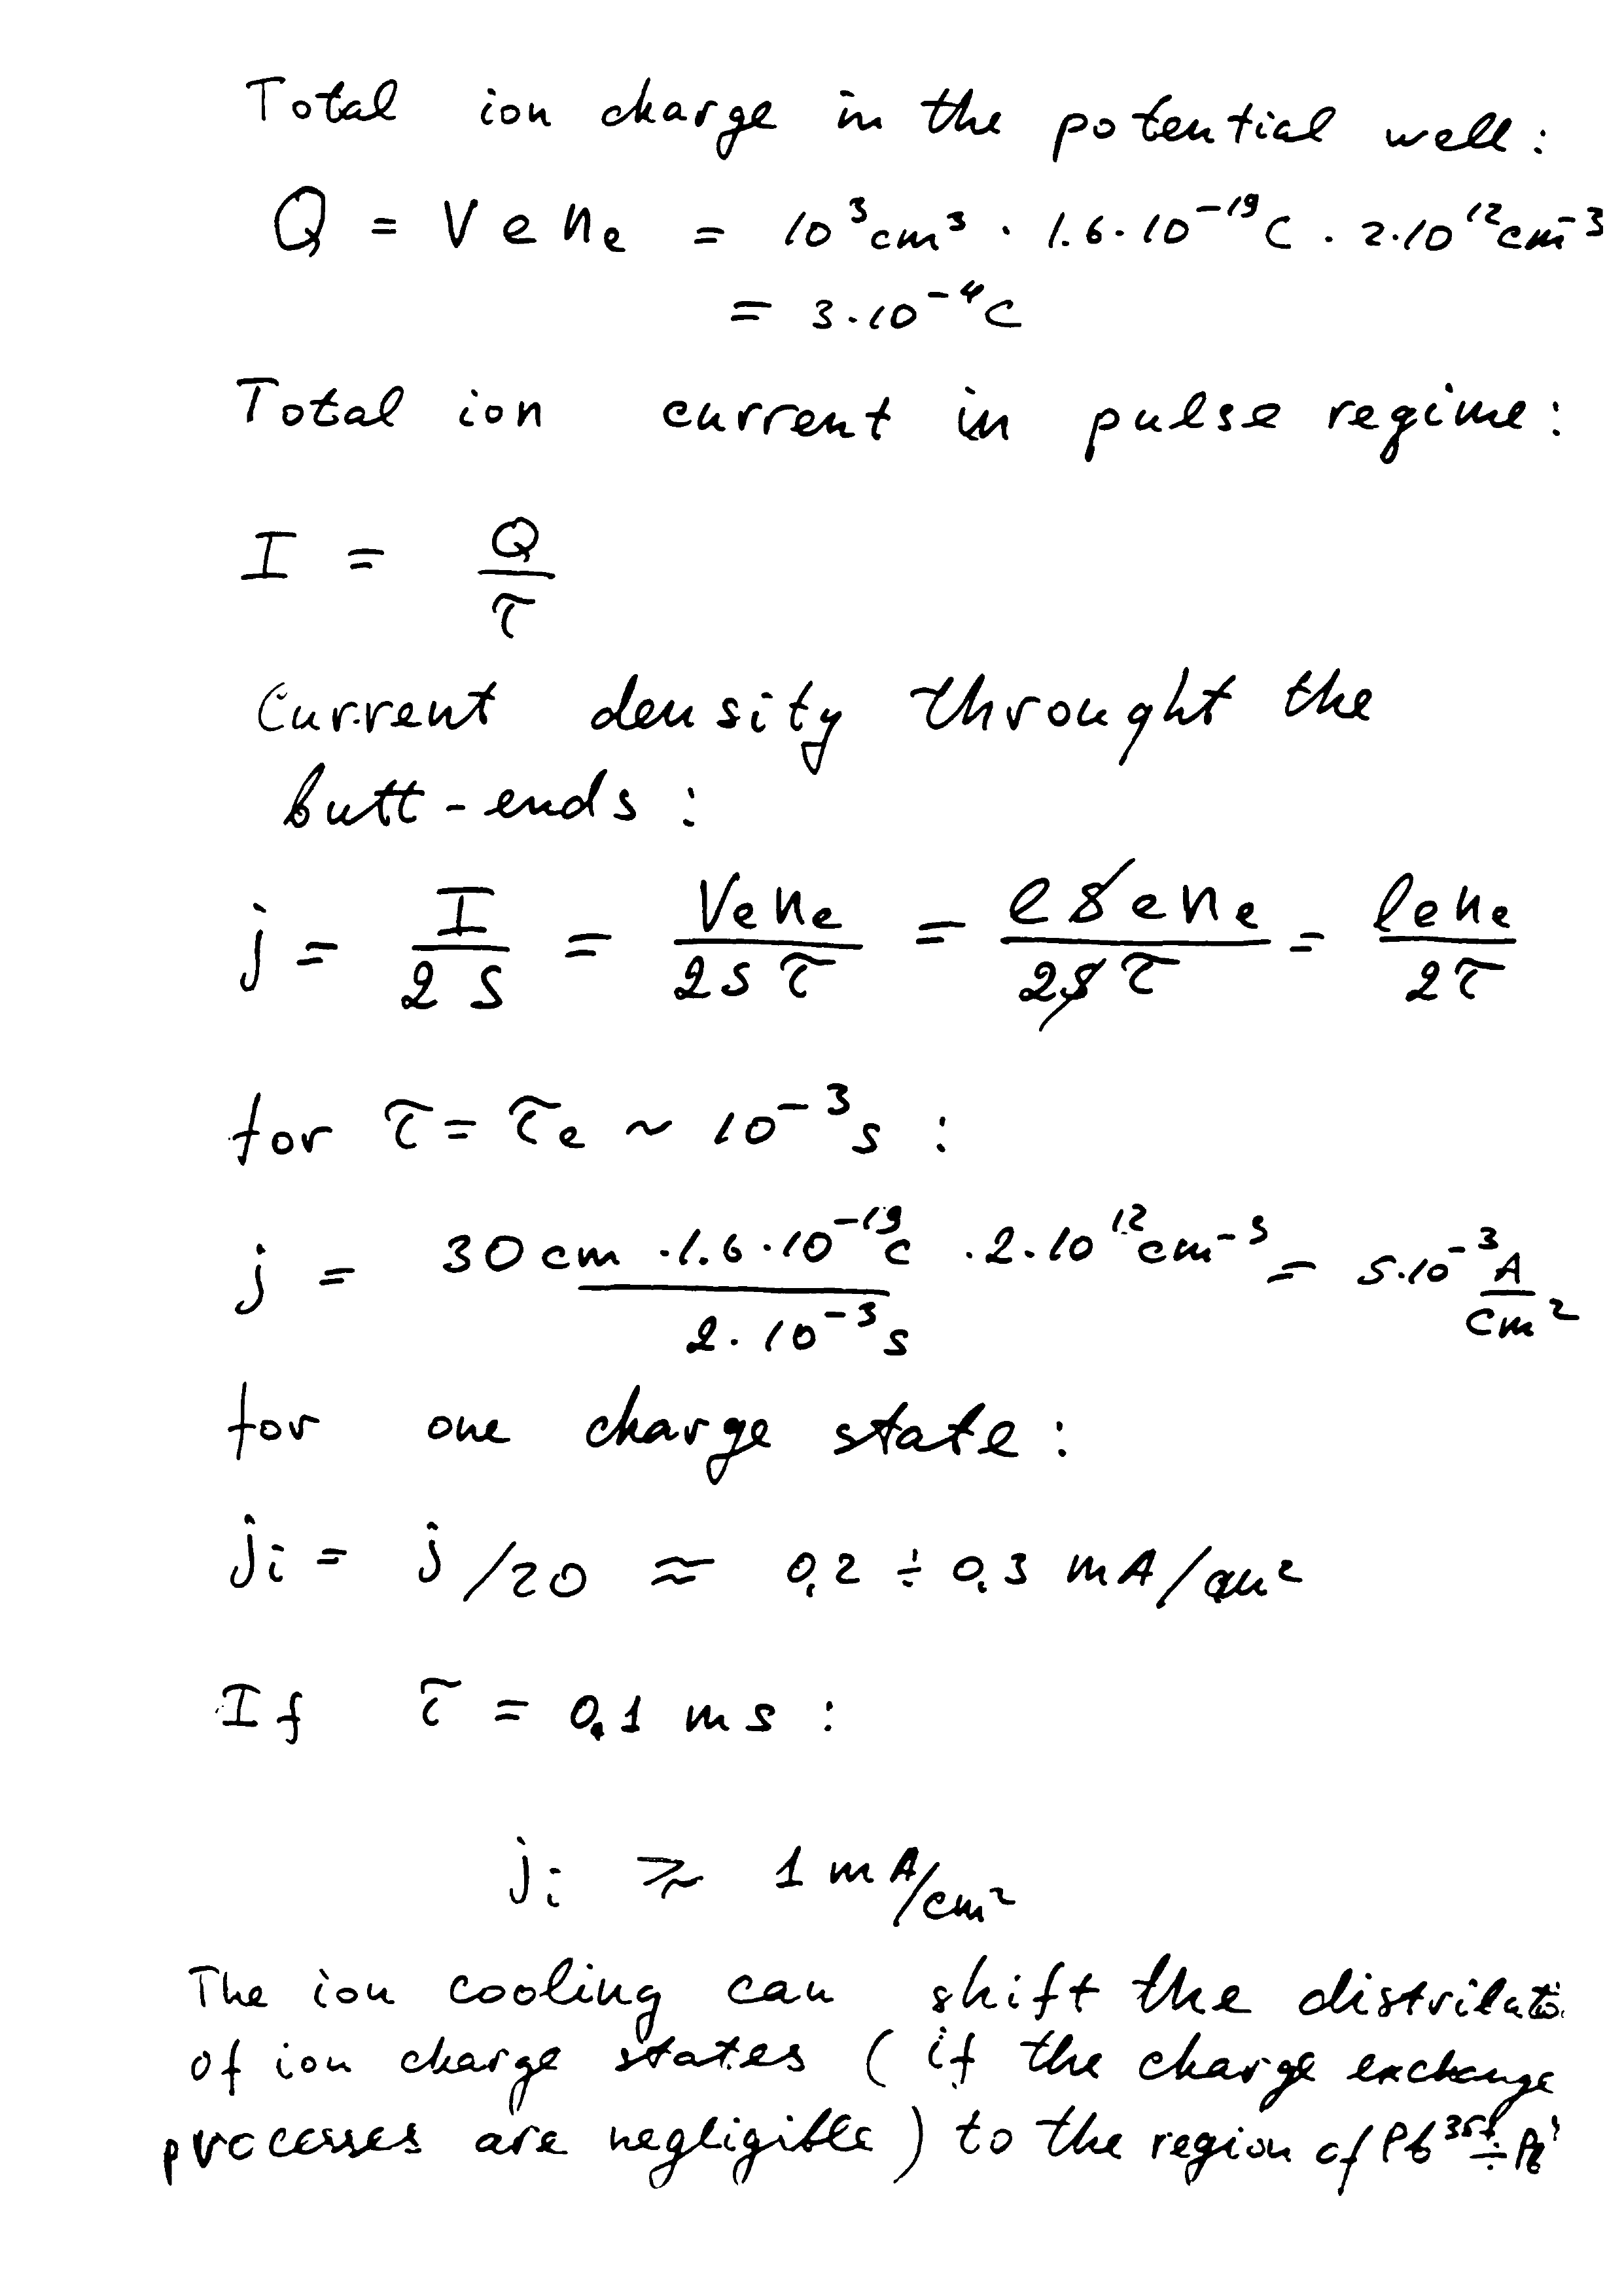 Total ion charge in the potential well:
Q = V e nₑ = 10³cm³ · 1.6·10⁻¹⁹C · 2·10¹²cm⁻³
= 3·10⁻⁴C
Total ion current in pulse regime:
I = Q/τ
Current density throught the
butt-ends:
j = I/2S = Venₑ/2Sτ = lSenₑ/2Sτ = lenₑ/2τ
for τ = τₑ ~ 10⁻³s :
j = 30cm · 1.6·10⁻¹⁹C · 2·10¹²cm⁻³ / 2·10⁻³s = 5·10⁻³ A/cm²
for one charge state:
jᵢ = j/20 ≈ 0,2 ÷ 0,3 mA/cm²
If τ = 0,1 ms :
jᵢ ≳ 1 mA/cm²
The ion cooling can shift the
of ion charge states (if the charge exchange
processes are negligible) to the region of Pb³⁵⁺ ÷ Pb